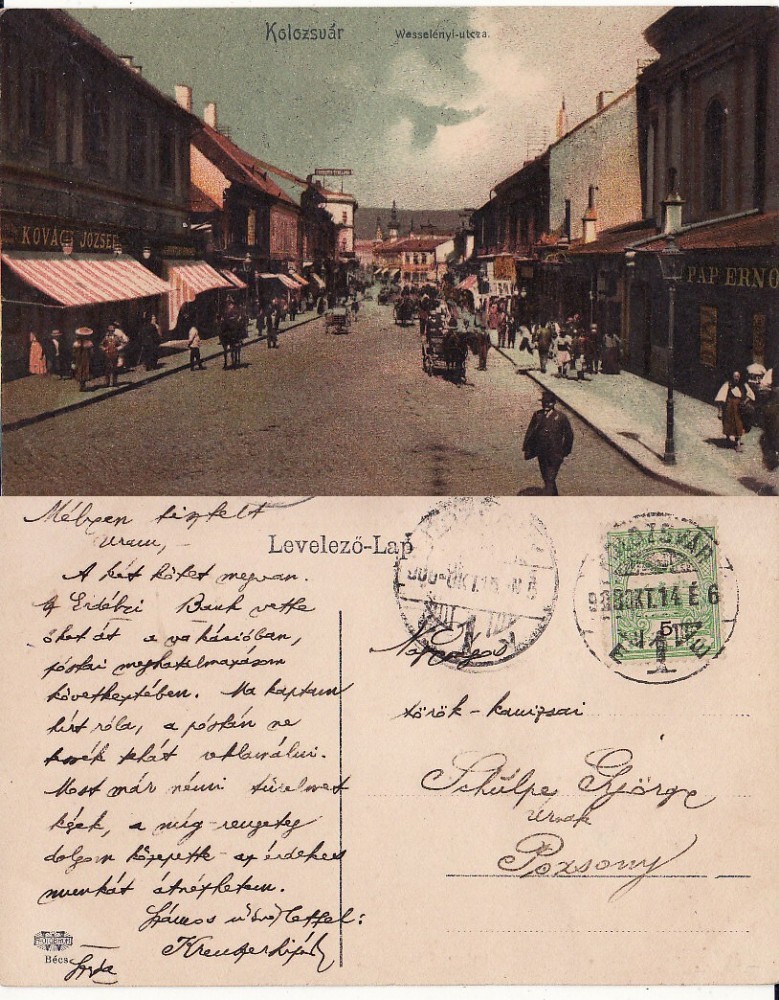 Kolozsvár
Wesselényi-utcza.
KOVÁCS JÓZSEF
PAP ERNŐ
Mélyen tisztelt
Uram,-
Levelező-Lap
A két kötet megvan.
Az Erdélyi Bank vette
őket át a vakációban,
postai meghatalmazásom
következtében. Ma kaptam
hírt róla, a postán ne
tessék tehát reklamálni.
Most már némi türelmet
kérek, a míg rengeteg
dolgom közepette az érdekes
munkát átnézhetem.
Számos üdvözlettel:
KOLOZSVÁR
OKT. 14 É 6
5
Nagyságos
török-kanizsai
Schulpe György
Úrnak
Pozsony
Bécs